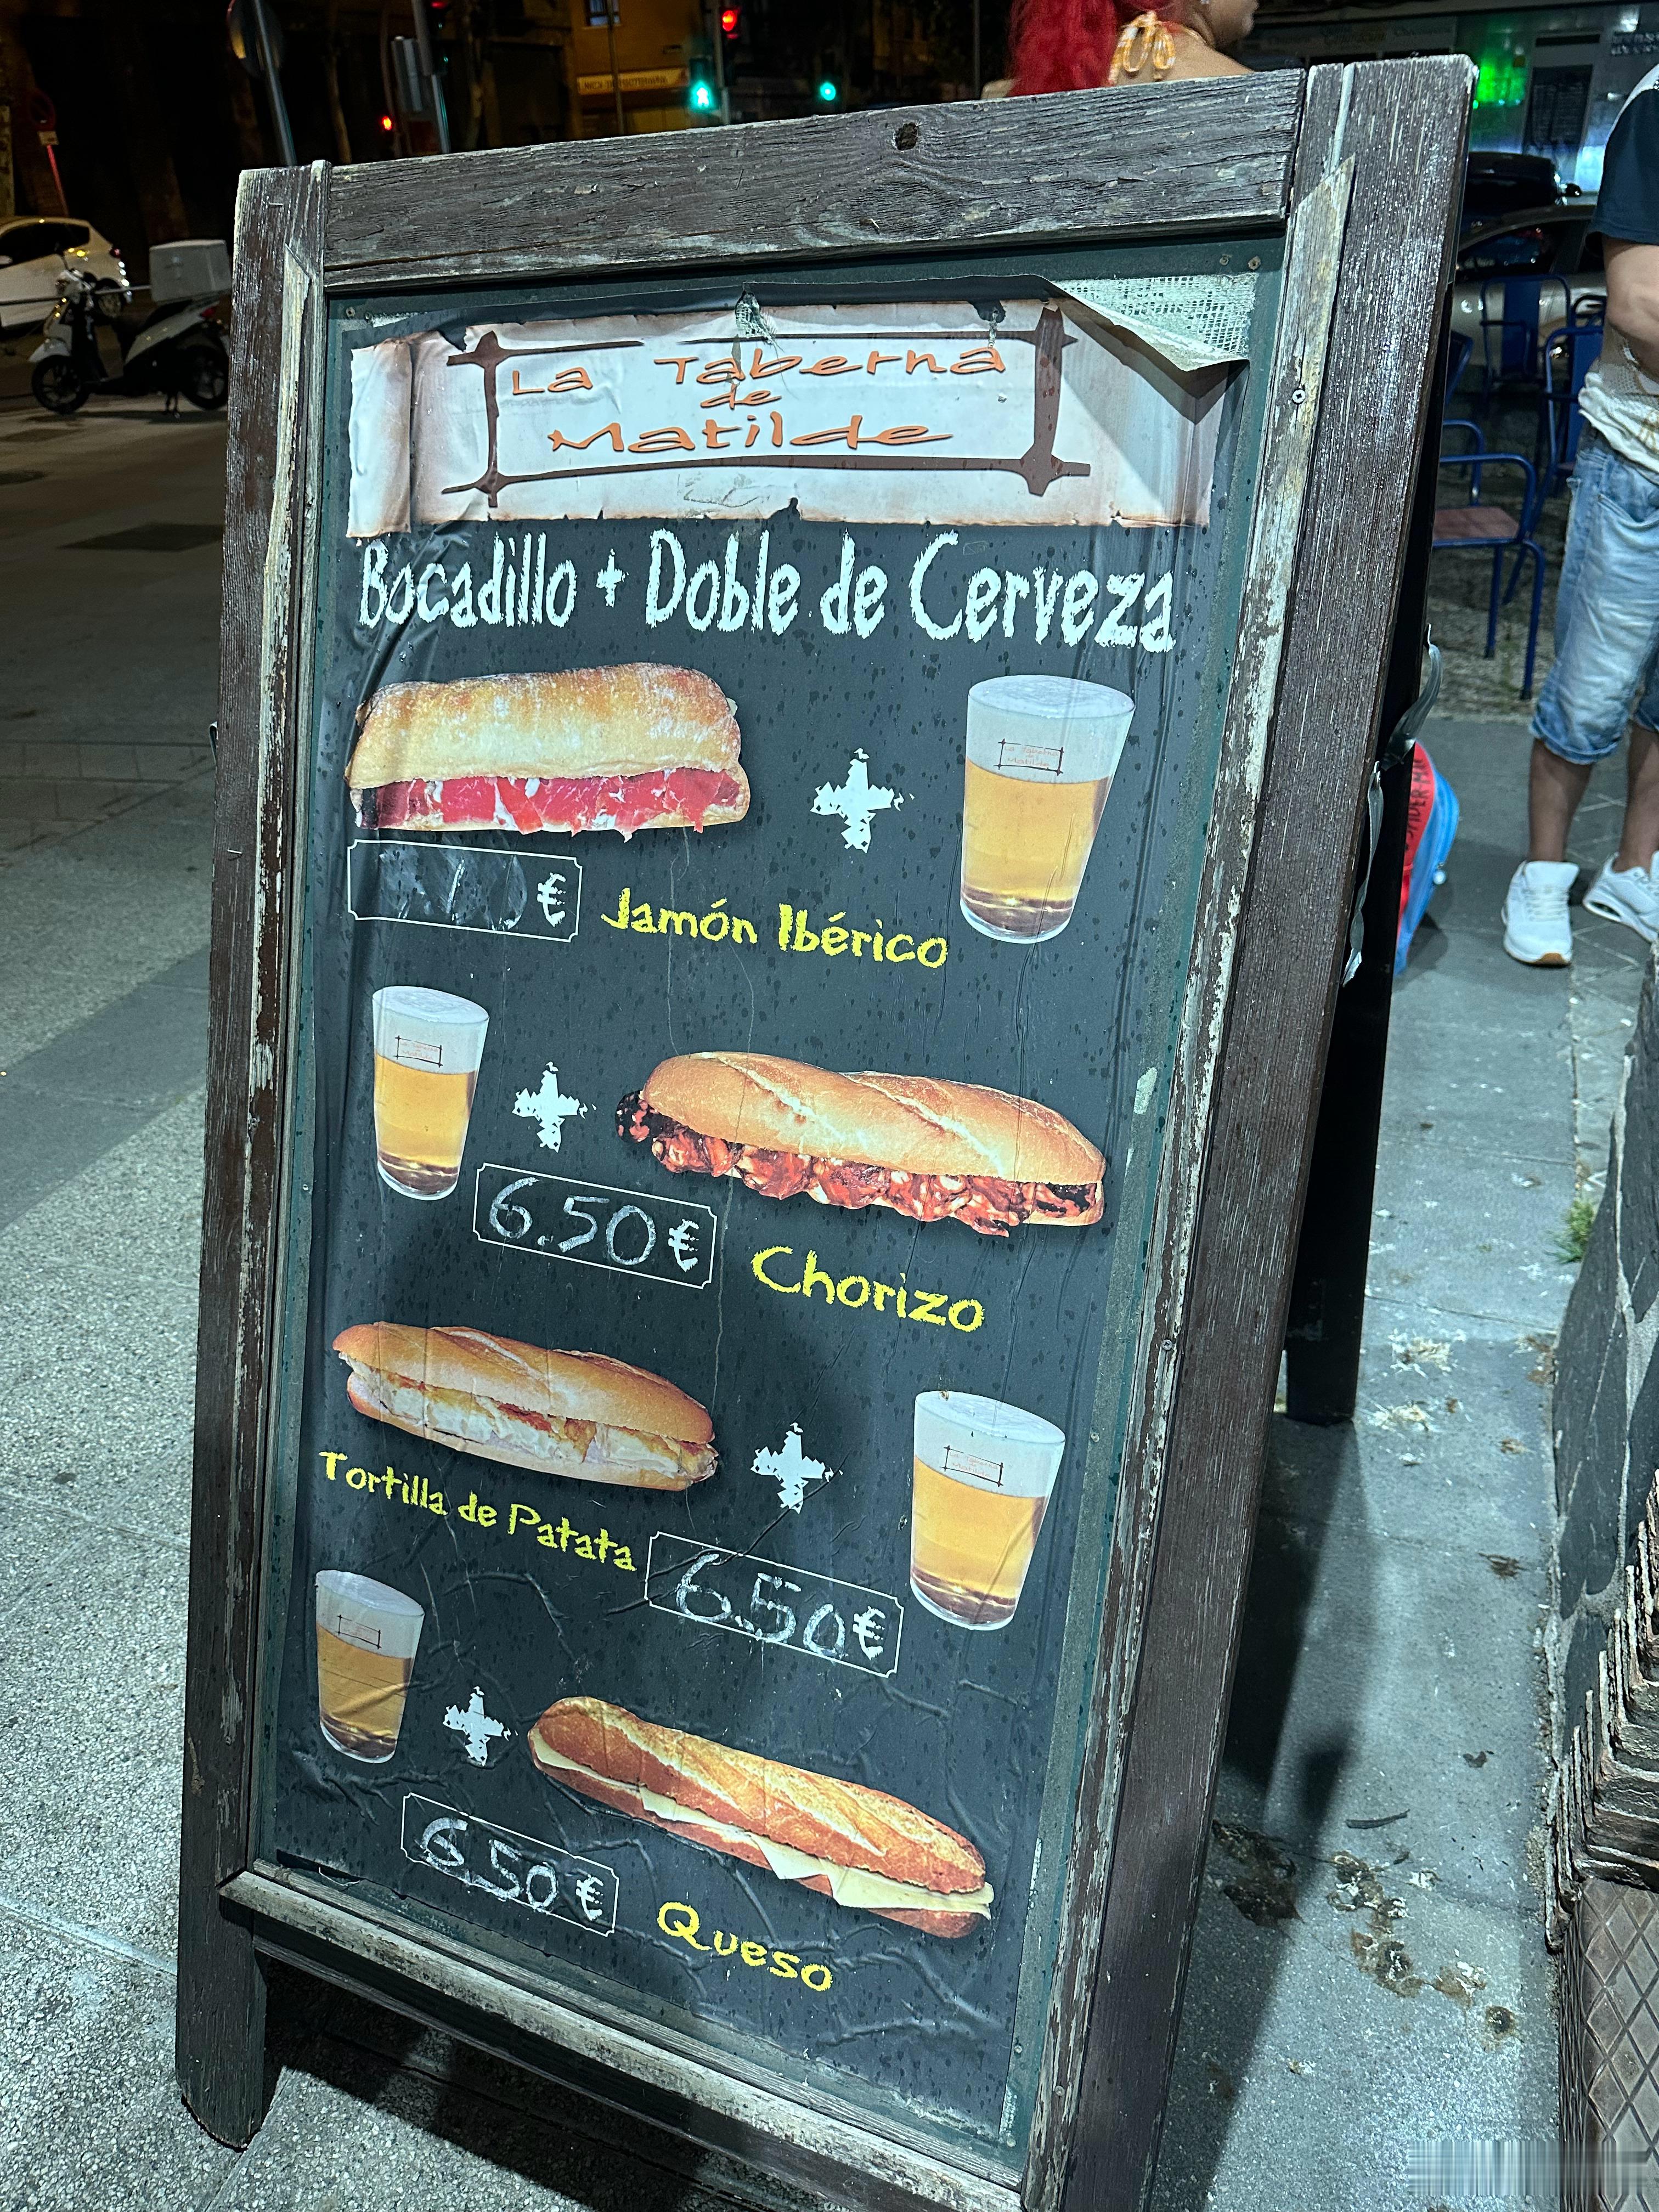 La Taberna
de
Matilde
Bocadillo + Doble de Cerveza
€
Jamón Ibérico
6.50€
Chorizo
Tortilla de Patata
6.50€
6.50€
Queso